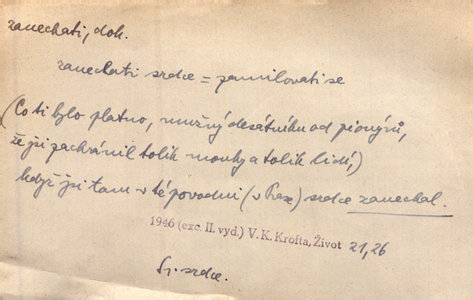 zanechati, dok.
zanechati srdce = zamilovati se
(Co ti bylo platno, mužný desátníku od pionýrů,
že jsi zachránil tolik mouky a tolik lidí,)
když jsi tam v té povodni (v Praze) srdce zanechal.
1946 (exc. II. vyd.) V. K. Krofta, Život 21, 26
Sr. srdce.